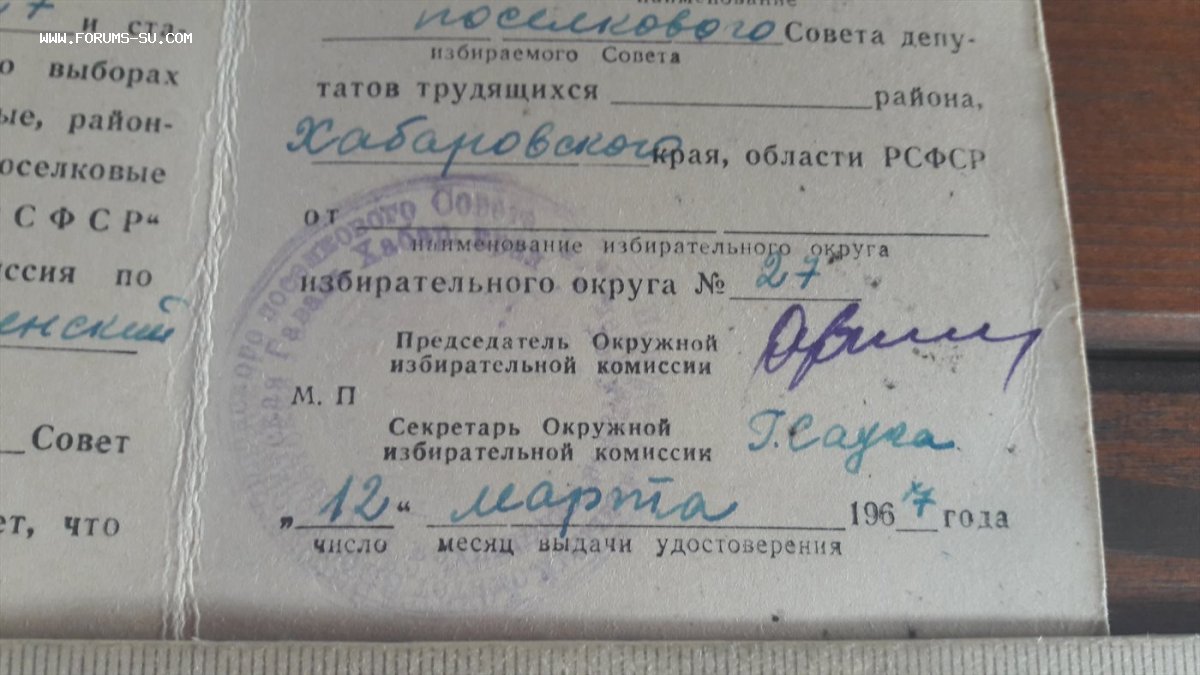 WWW.FORUMS-SU.COM
и ста-
о выборах
ые, район-
оселковые
СФСР"
иссия по
енский
Совет
ет, что
наименование
поселкового Совета депу-
избираемого Совета
татов трудящихся района,
Хабаровского края, области РСФСР
от
наименование избирательного округа
избирательного округа № 27
Председатель Окружной
избирательной комиссии
М. П
Секретарь Окружной
избирательной комиссии
„ 12 “ марта 1967 года
число месяц выдачи удостоверения
поселкового Совета
Гавань Хабар. края